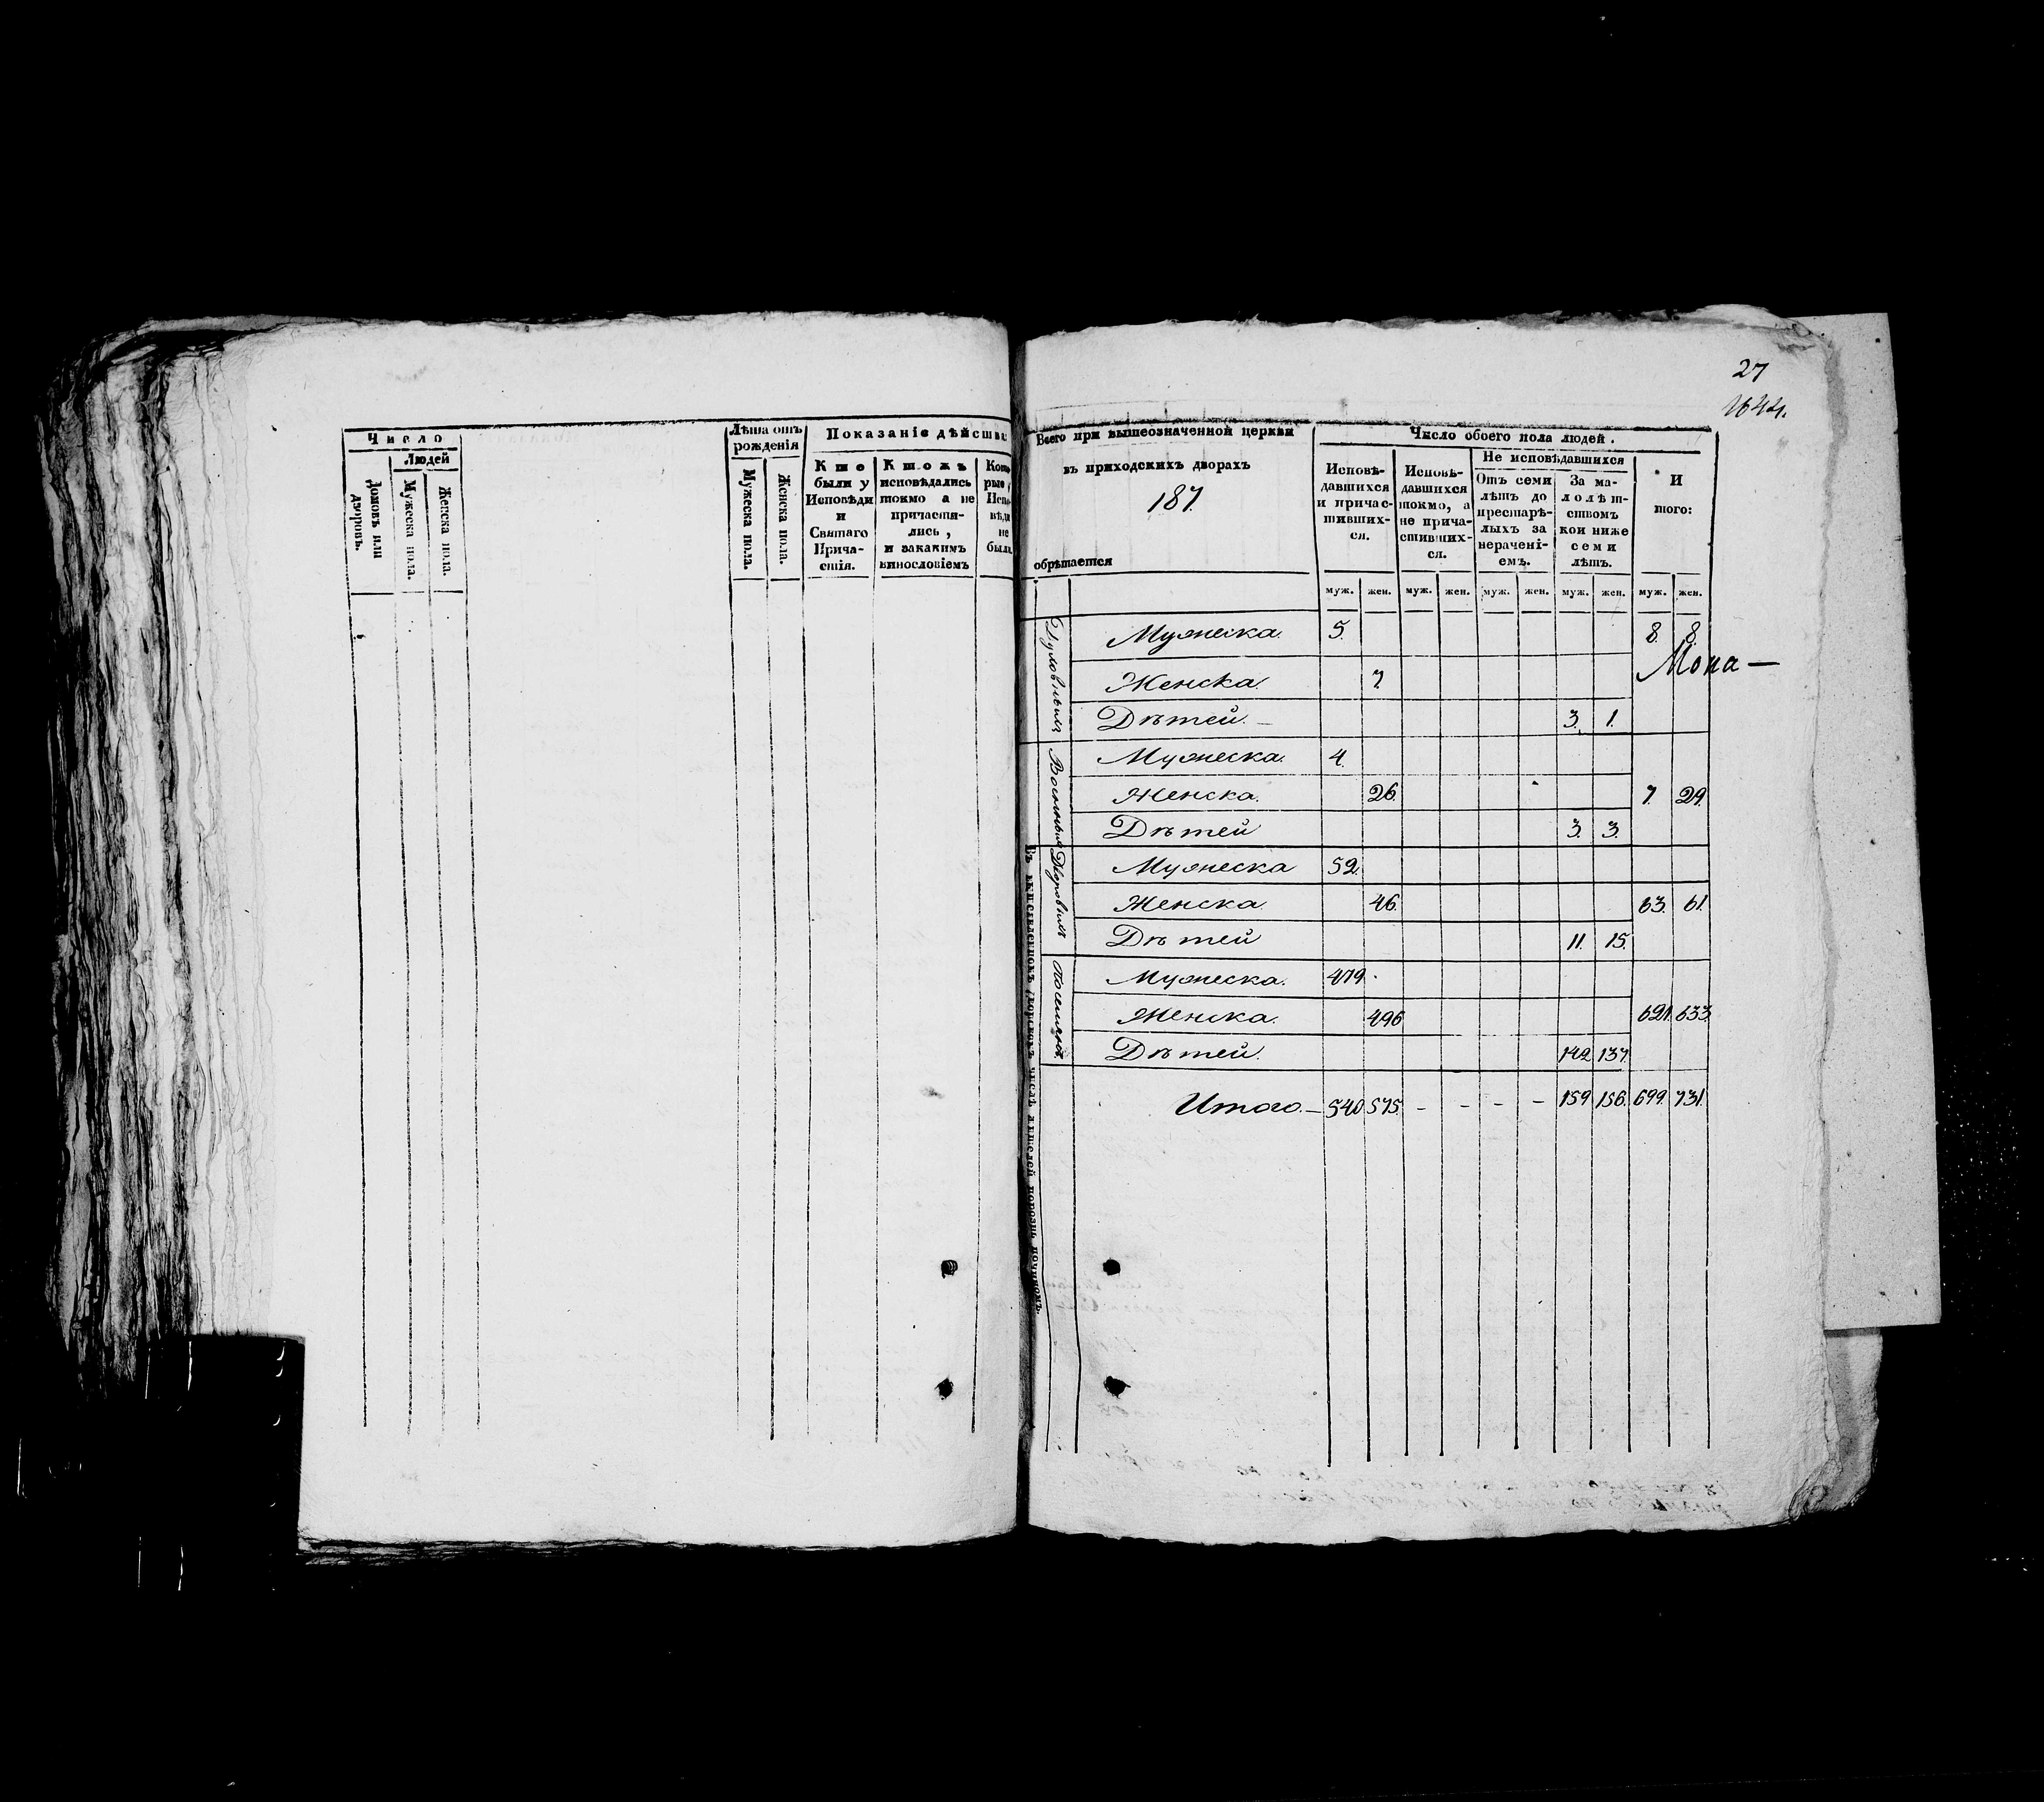 Число
Людей
Домовъ или дворовъ.
Мужеска пола.
Женска пола.
Лѣта отъ рожденія
Мужеска пола.
Женска пола.
Показаніе дѣйства
Кто были у Исповѣди и Святаго Прича-стія.
Ктожъ исповѣдались токмо а не причасти-лись, и закакимъ винословіемъ
Кото-рые Испо-вѣди не были.
27
1644.
Всего при вышеозначенной церкви
въ приходскихъ дворахъ
187.
обрѣтается
Число обоего пола людей.
Исповѣ-давшихся и причас-тивших-ся.
Исповѣ-давшихся токмо, а не прича-стивших-ся.
Не исповѣдавшихся
Отъ семи лѣтъ до престарѣ-лыхъ за нерачені-емъ.
За ма-лолѣт-ствомъ кои ниже семи лѣтъ.
И того:
муж. жен. муж. жен. муж. жен. муж. жен. муж. жен.
Духовныхъ
Мужеска. 5. 8. 8.
Мона—
Женска. 7.
Дѣтей.— 3. 1.
Военныхъ
Мужеска. 4.
Женска. 26. 7. 29.
Дѣтей 3. 3.
Дворовыхъ
Мужеска 52.
Женска. 46. 63. 61.
Дѣтей 11. 15.
Поселянъ.
Мужеска. 479.
Женска. 496 621. 633.
Дѣтей. 142. 137.
Итого.— 540. 575. - - - - 159. 156. 699. 731.